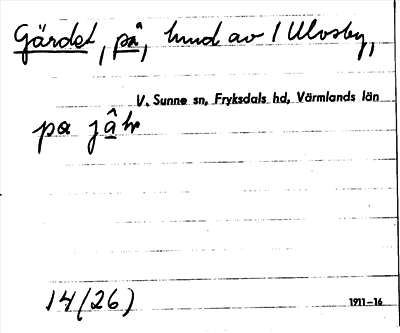 Gärdet, på, hmd av 1 Ulvsby,
V. Sunne sn, Fryksdals hd, Värmlands län
pa jâ
14 (26)
1911-16